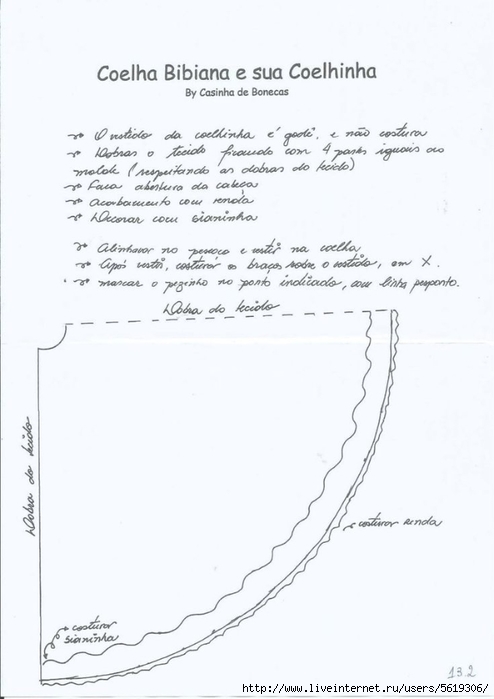 Coelha Bibiana e sua Coelhinha
By Casinha de Bonecas
O vestido da coelhinha é godê, e não costura
Dobras o tecido ficando com 4 partes iguais ao
molde (respeitando as dobras do tecido)
Faça abertura da cabeça
Acabamento com renda
Decorar com sianinha
Alinhavar no pescoço e vestir na coelha
Após vestir, costurar os braços sobre o vestido, em X.
marcar o pezinho no ponto indicado, com linha pesponto.
Dobra do tecido
Dobra do tecido
costurar renda
costurar
sianinha
13.2
http://www.liveinternet.ru/users/5619306/